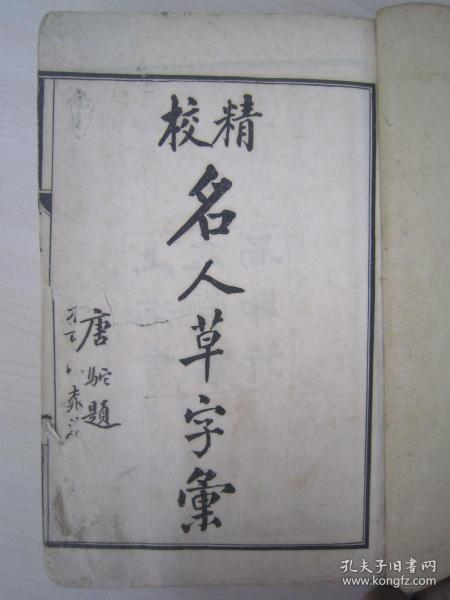 精校
名人草字彙
唐駝題
孔夫子旧书网
www.kongfz.com